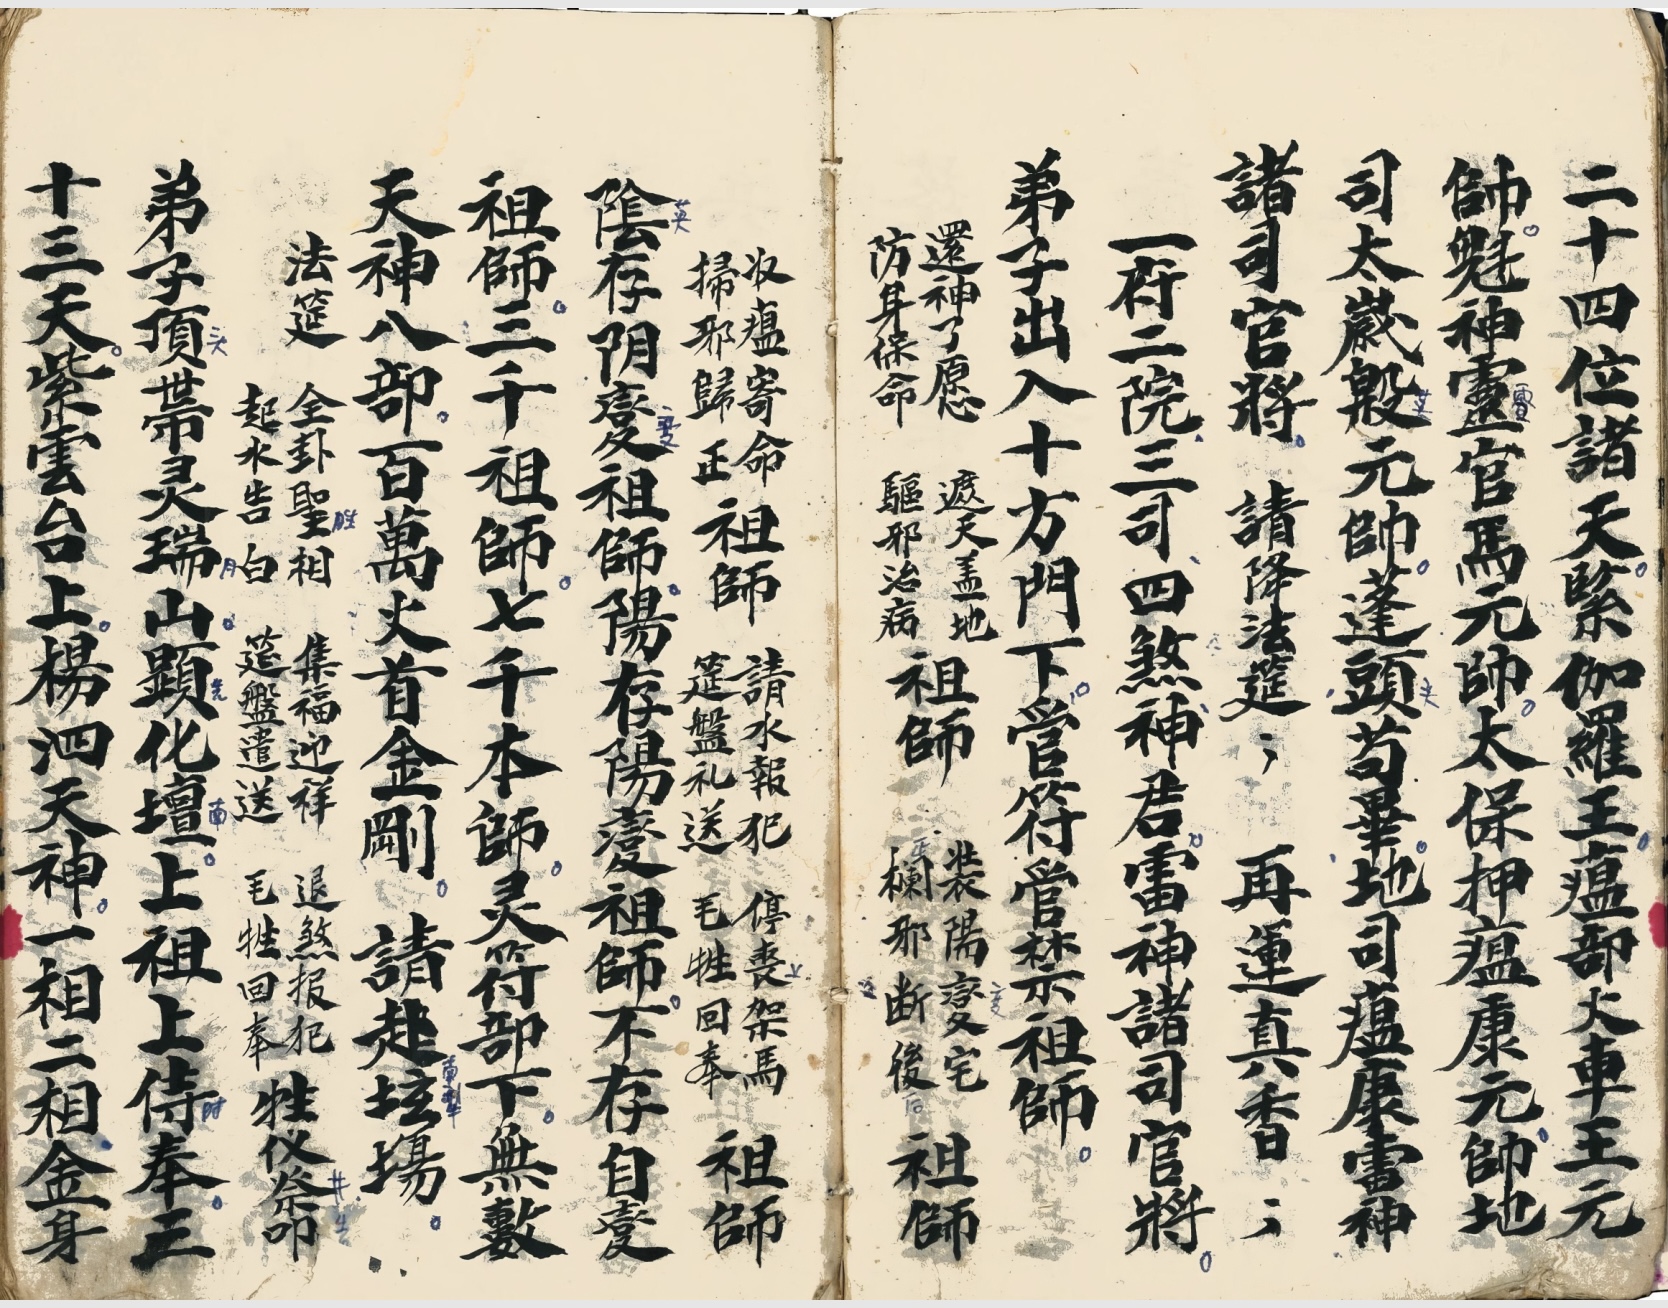 二十四位諸天緊伽羅王瘟部火車王元
帥魁神靈官馬元帥太保押瘟康元帥地
司太歲殷元帥蓬頭苟畢地司瘟康雷神
諸司官將 請降法筵 再運真香
一府二院三司四煞神君雷神諸司官將
弟子出入十方門下管符管禁祖師
還神了愿 遮天盖地
防身保命 驅邪治病
祖師
裝陽變宅
欄邪断後
祖師
收瘟寄命
掃邪歸正
祖師
請水報犯 停喪架馬
筵盤礼送 毛牲回奉
祖師
陰存阴變祖師陽存陽變祖師不存自變
祖師三千祖師七千本師灵符部下無數
天神八部百萬火首金剛 請赴坛場
法筵
全卦聖相 集福迎祥 退煞报犯
起水告白 筵盤遣送 毛牲回奉
牲仪祭
弟子頂帶灵瑞山顕化壇上祖上侍奉三
十三天紫雲台上楊泗天神一相二相金身